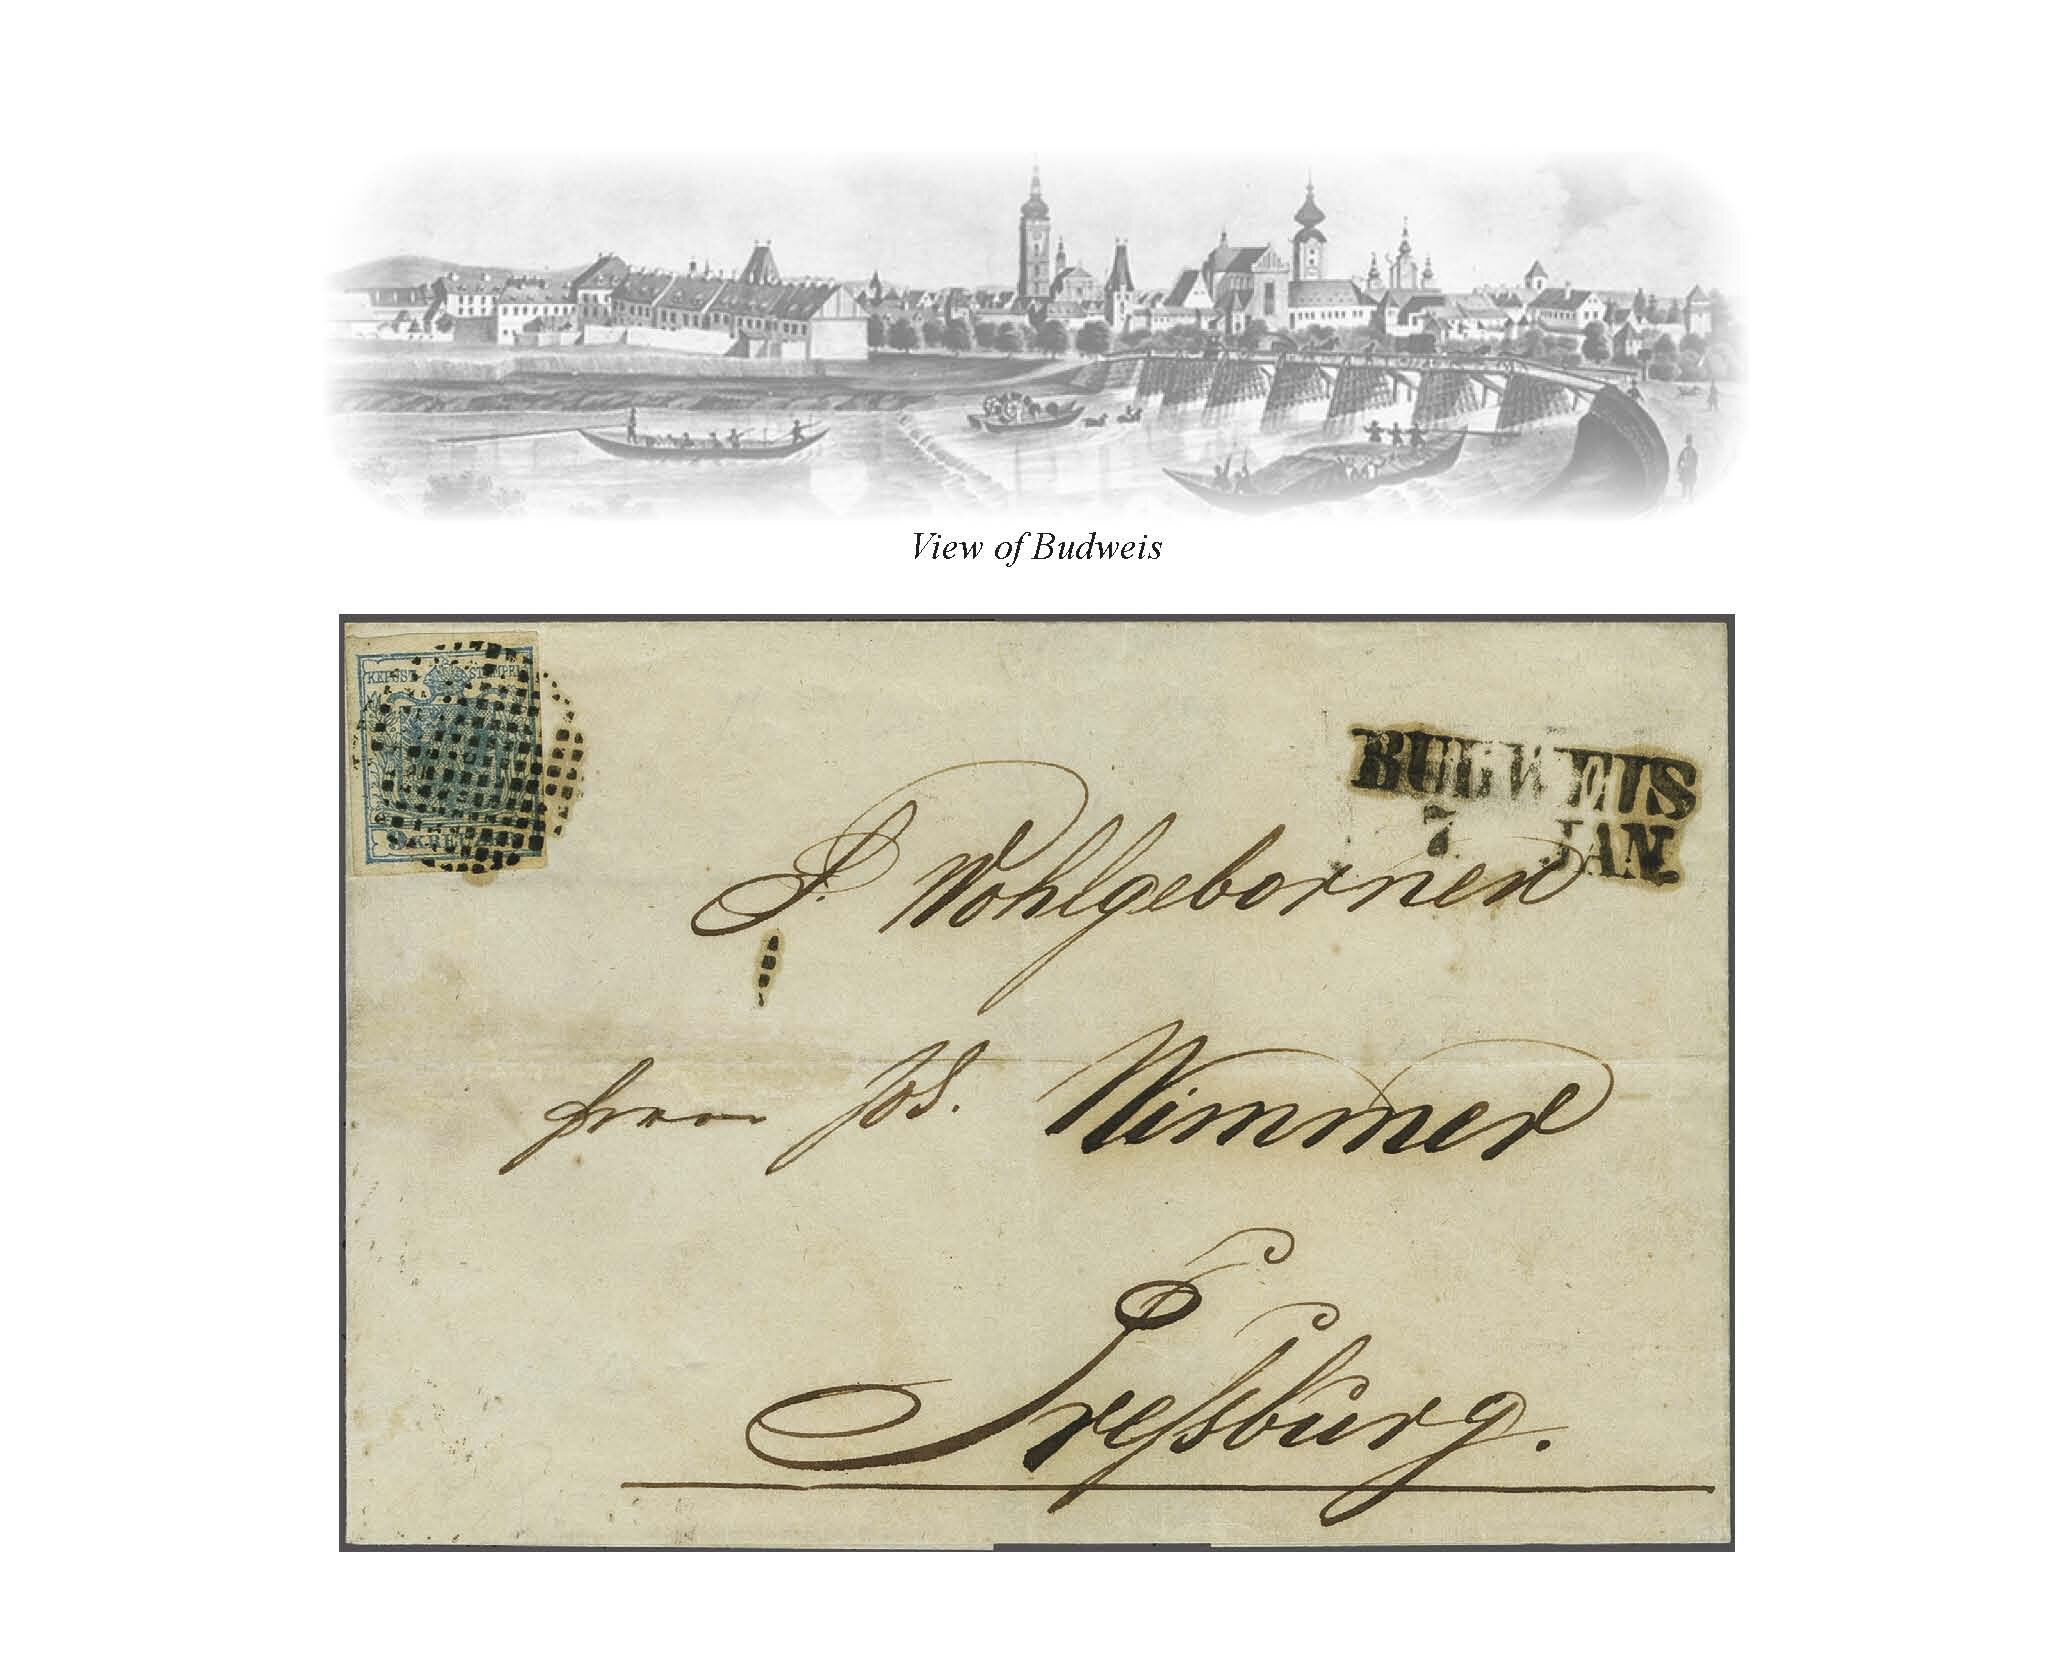 View of Budweis
KKPOST STEMPEL
9 KREUZER
BUDWEIS
7. JAN.
S. Wohlgebornen
Herrn Jos. Wimmer
Preſsburg.